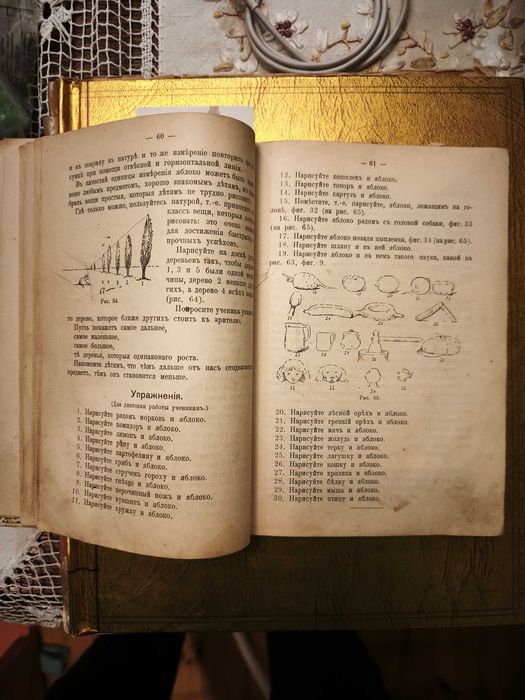 — 60 —
и въ ширину въ натурѣ и то же измѣреніе повторить на
сункѣ при помощи отвѣсной и горизонтальной линіи.
Въ качествѣ единицы измѣренія яблоко можетъ быть
нено любымъ предметомъ, хорошо знакомымъ дѣтямъ, но
брать вещи простыя, которыя дѣтямъ не трудно рисовать.
Гдѣ только можно, пользуйтесь натурой, т.-е. приносите
классъ вещи, которыя
рисовать: это очень
для достиженія быстрыхъ
прочныхъ успѣховъ.
Нарисуйте на доскѣ
деревьевъ такъ, чтобы
1, 3 и 5 были одной
чины, дерево 2 меньше
гихъ, а дерево 4 всѣхъ
(рис. 64).
Рис. 64.
Попросите ученика
то дерево, которое ближе другихъ стоитъ къ зрителю.
Пусть покажетъ самое дальнее,
самое маленькое,
самое большое,
тѣ деревья, которыя одинаковаго роста.
Напомните дѣтямъ, что чѣмъ дальше отъ насъ
предметъ, тѣмъ онъ становится меньше.
Упражненія.
(Для диктовки работы ученикамъ.)
1. Нарисуйте рядомъ морковь и яблоко.
2. Нарисуйте помидоръ и яблоко.
3. Нарисуйте лимонъ и яблоко.
4. Нарисуйте рѣпу и яблоко.
5. Нарисуйте картофелину и яблоко.
6. Нарисуйте грибъ и яблоко.
7. Нарисуйте стручекъ гороху и яблоко.
8. Нарисуйте гнѣздо и яблоко.
9. Нарисуйте перочинный ножъ и яблоко.
10. Нарисуйте кувшинъ и яблоко.
11. Нарисуйте кружку и яблоко.
— 61 —
12. Нарисуйте кошелекъ и яблоко.
13. Нарисуйте топоръ и яблоко.
14. Нарисуйте картузъ и яблоко.
15. Помѣстите, т.-е. нарисуйте, яблоко, лежащимъ на го-
ловѣ, фиг. 32 (на рис. 65).
16. Нарисуйте яблоко рядомъ съ головой собаки, фиг. 33
(на рис. 65).
17. Нарисуйте яблоко позади цыпленка, фиг. 34 (на рис. 65).
18. Нарисуйте шляпу и въ ней яблоко.
19. Нарисуйте яблоко и на немъ такого паука, какой на
рис. 63, фиг. 9.
Рис. 65.
20. Нарисуйте лѣсной орѣхъ и яблоко.
21. Нарисуйте грецкій орѣхъ и яблоко.
22. Нарисуйте мячъ и яблоко.
23. Нарисуйте жолудь и яблоко.
24. Нарисуйте терку и яблоко.
25. Нарисуйте лягушку и яблоко.
26. Нарисуйте кошку и яблоко.
27. Нарисуйте кролика и яблоко.
28. Нарисуйте бѣлку и яблоко.
29. Нарисуйте мышь и яблоко.
30. Нарисуйте птицу и яблоко.